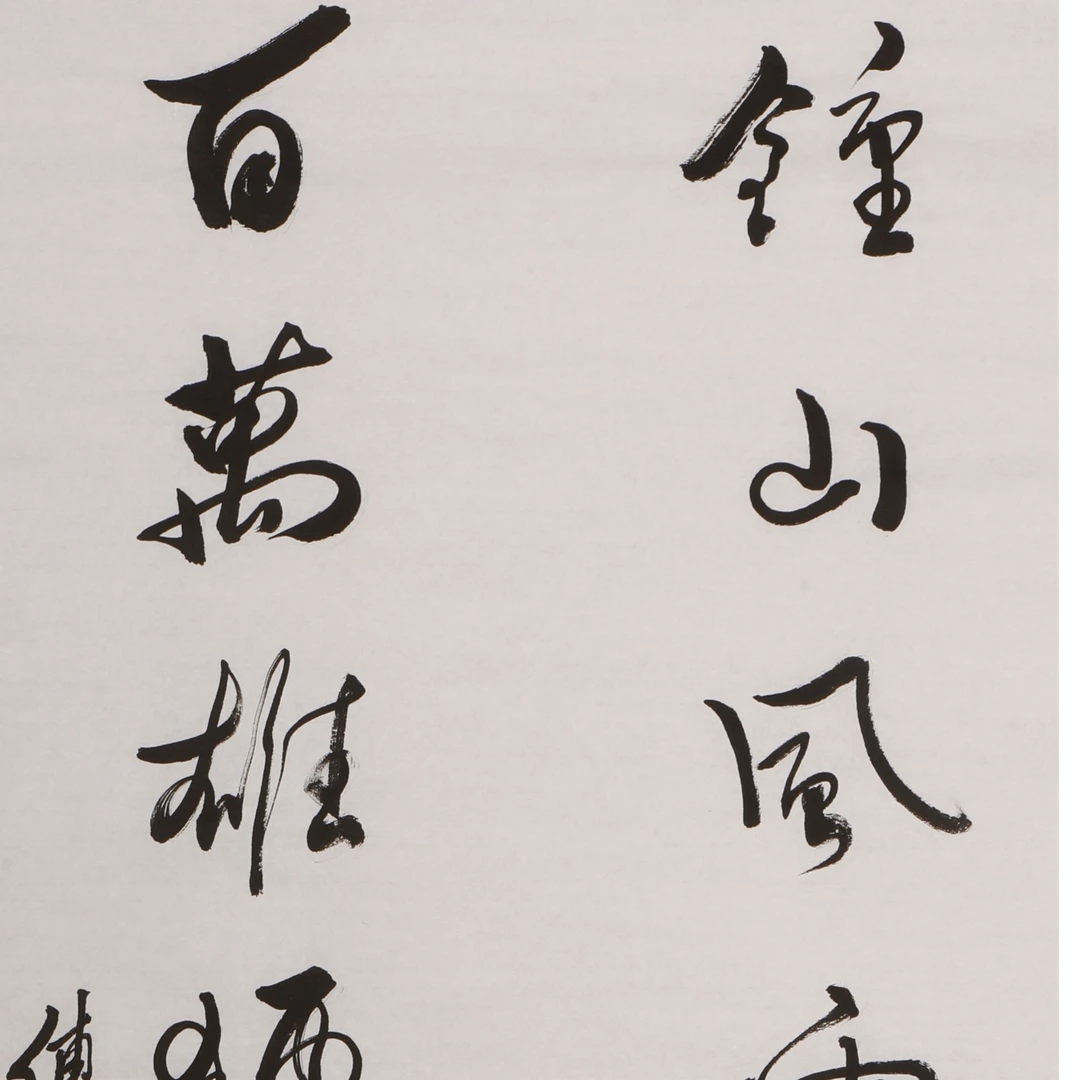 鍾山風
百萬雄